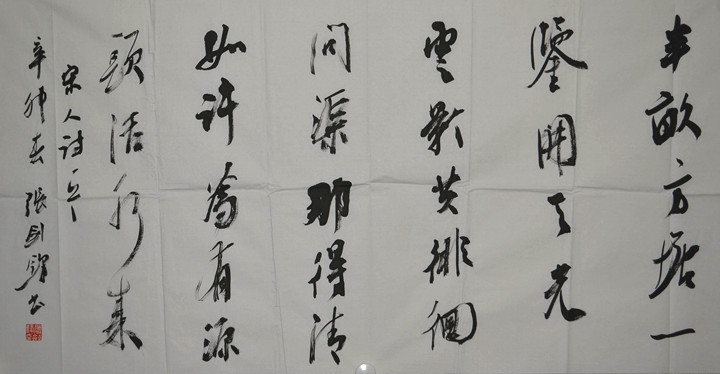 半畝方塘一
鑒開天光
雲影共徘徊
問渠那得清
如許為有源
頭活水來
宋人詩一首
辛卯春 張劍書